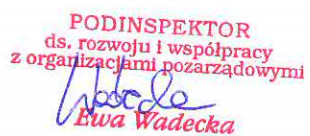 PODINSPEKTOR
ds. rozwoju i współpracy
z organizacjami pozarządowymi
Ewa Wadecka